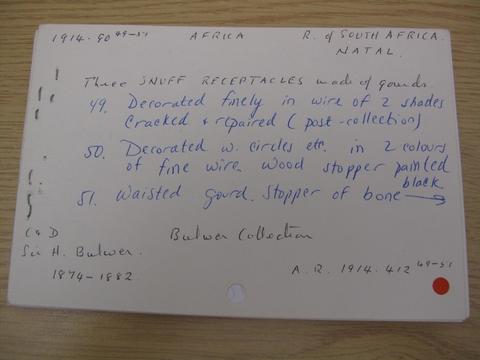 1914.90 49-51 AFRICA R. of SOUTH AFRICA.
NATAL.
Three SNUFF RECEPTACLES made of gourds.
49. Decorated finely in wire of 2 shades
Cracked & repaired (post-collection)
50. Decorated w. circles etc. in 2 colours
of fine wire. Wood stopper painted
black.
51. Waisted gourd. Stopper of bone →
C & D Bulwer Collection
Sir H. Bulwer.
1874-1882. A.R. 1914.412 49-51